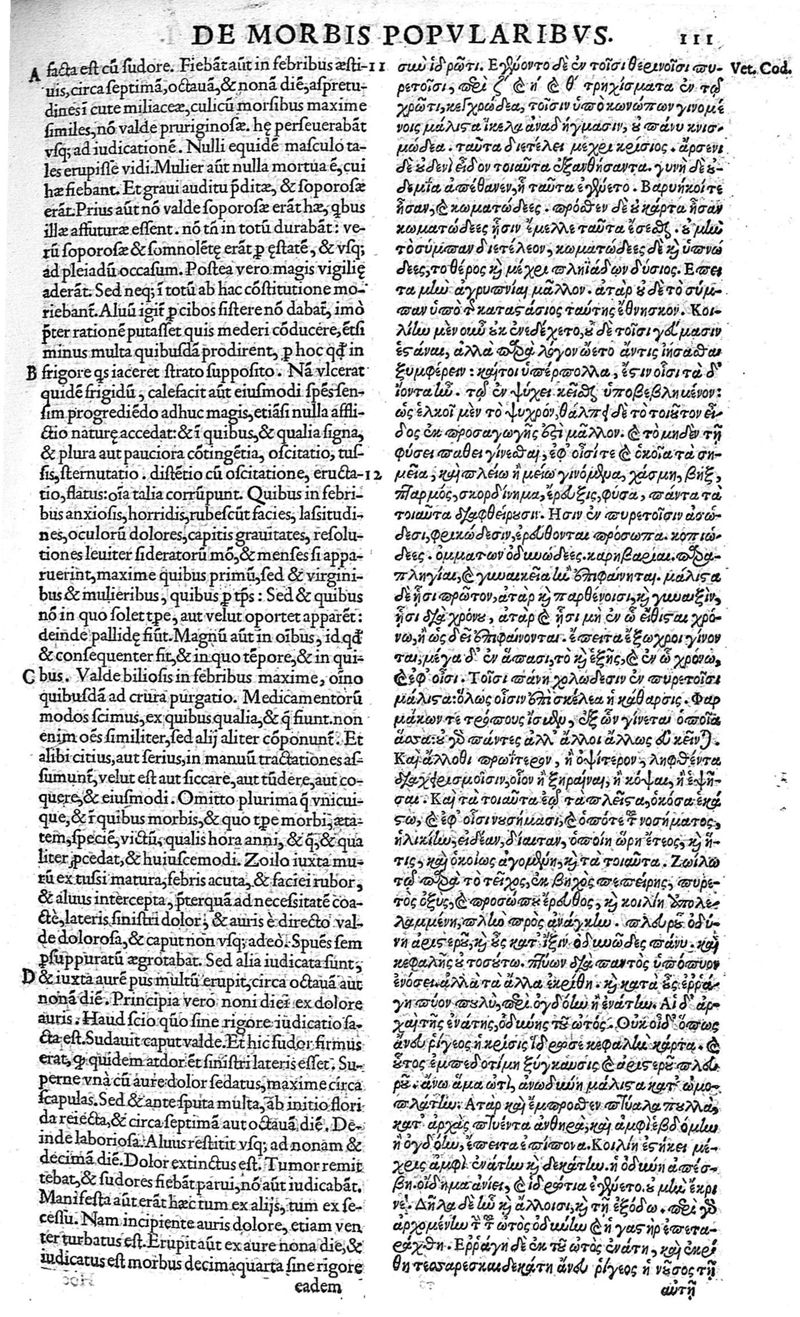 DE MORBIS POPVLARIBVS. 111
A facta est cū sudore. Fiebāt aūt in febribus æsti-
uis, circa septimā, octauā, & nonā diē, aspretu-
dines ī cute miliaceæ, culicū morsibus maxime
similes, nō valde pruriginosæ. hę perseuerabāt
vsq; ad iudicationē. Nulli equidē masculo ta-
les erupisse vidi. Mulier aūt nulla mortua ē, cui
hæ fiebant. Et graui auditu p̄ditæ, & soporosæ
erāt. Prius aūt nō valde soporosæ erāt hæ, qbus
illæ affuturæ essent. nō tn̄ in totū durabāt: ve-
rū soporosæ & somnolētę erāt ꝑ ęstatē, & vsq;
ad pleiadū occasum. Postea vero magis vigilię
aderāt. Sed neq; ī totū ab hac cōstitutione mo-
riebant. Aluū igit̄ ꝑ cibos sistere nō dabat, imò
p̄ter rationē putasset quis mederi cōducere, etsi
minus multa quibusdā prodirent, ꝑ hoc qđ in
B frigore qs iaceret strato supposito. Nā vlcerat
quidē frigidū, calefacit aūt eiusmodi spēs sen-
sim progrediēdo adhuc magis, etiāsi nulla affli-
ctio naturę accedat: & ī quibus, & qualia signa,
& plura aut pauciora cōtingētia, oscitatio, tus-
sis, sternutatio. distētio cū oscitatione, eructa-
tio, flatus: oīa talia corrūpunt. Quibus in febri-
bus anxiosis, horridis, rubescūt facies, lassitudi-
nes, oculorū dolores, capitis grauitates, resolu-
tiones leuiter sideratorū mō, & menses si appa-
ruerint, maxime quibus primū, sed & virgini-
bus & mulieribus, quibus ꝑ tp̄s: Sed & quibus
nō in quo solet tpe, aut velut oportet apparēt:
deinde pallidę fiūt. Magnū aut in oībus, id qđ
& consequenter fit, & in quo tēpore, & in qui-
C bus. Valde biliosis in febribus maxime, oīno
quibusdā ad crura purgatio. Medicamentorū
modos scimus, ex quibus qualia, & q̄ fiunt. non
enim oēs similiter, sed alij aliter cōponunt. Et
alibi citius, aut serius, in manuū tractationes as-
sumunt, velut est aut siccare, aut tūdere, aut co-
quere, & eiusmodi. Omitto plurima q̄ vnicui-
que, & ī quibus morbis, & quo tpe morbi, æta-
tem, speciē, victū, qualis hora anni, & q̄, & qua
liter ꝓcedat, & huiuscemodi. Zoilo iuxta mu-
rū ex tussi matura, febris acuta, & faciei rubor,
& aluus intercepta, p̄terquā ad necessitatē coa-
ctè, lateris sinistri dolor, & auris è directo val-
de dolorosa, & caput non vsq; adeò. Spuēs sem
ꝑ suppuratū ægrotabat. Sed alia iudicata sunt,
D & iuxta aurē pus multū erupit, circa octauā aut
nonā diē. Principia vero noni diei ex dolore
auris. Haud scio quo sine rigore iudicatio fa-
cta est. Sudauit caput valde. Et hic sudor firmus
erat, ꝙ quidem ardor et sinistri lateris esset. Su-
perne vnà cū aure dolor sedatus, maxime circa
scapulas. Sed & ante sputa multa, ab initio flori
da reiecta, & circa septimā aut octauā diē. De-
inde laboriosa. Aluus restitit vsq; ad nonam &
decimā diē. Dolor extinctus est. Tumor remit
tebat, & sudores fiebāt parui, nō aūt iudicabāt.
Manifesta aūt erāt hæc tum ex alijs, tum ex se-
cessu. Nam incipiente auris dolore, etiam ven
ter turbatus est. Erupit aūt ex aure nona die, &
iudicatus est morbus decimaquarta sine rigore
eadem
11 σιω ἱδρῶτι. Ἐγίνοντο δὲ ἐν τοῖσι θερινοῖσι πυ- Vet. Cod.
ρετοῖσι, περὶ ζ΄ & ή & θ΄ τρηχίσματα ἐν τῷ
χρῶτι, κεγχρώδεα, τοῖσιν ὑπὸ κωνώπων γινομέ
νοις μάλιστα ἴκελα ἀναδήγμασιν, οὐ πάνυ κνισ-
μώδεα. ταῦτα διετέλει μέχρι κρίσιος. ἄρσενι
δὲ οὐδενὶ εἶδον τοιαῦτα ἐξανθήσαντα. γυνὴ δὲ οὐ-
δεμία ἀπέθανεν, ᾗ ταῦτα ἐγένετο. Βαρυήκοΐτε
ἦσαν, & κωματώδεες. πρόσθεν δὲ οὐ κάρτα ἦσαν
κωματώδεες ᾗσιν ἔμελλε ταῦτα ἔσεσθαι. οὐ μὴν
τὸ σύμπαν διετέλεον, κωματώδεες δὲ καὶ ὑπνώ
δεες, τὸ θέρος καὶ μέχρι πληϊάδων δύσιος. Ἔπει
τα μὴν ἀγρυπνίαι μᾶλλον. ἀτὰρ οὐδὲ τὸ σύμ-
παν ὑπὸ τ καταστάσιος ταύτης ἔθνησκον. Κοι-
λίην μὲν οὖν οὐκ ἐνεδέχετο, οὐδὲ τοῖσι γεύμασιν
ἑστάναι, ἀλλὰ παρὰ λόγον ᾤετο ἄν τις ἰήσασθαι
ξυμφέρειν: καίτοι ὑπέρπολλα, ἔστιν οἷσι τὰ δι
ιόντα ἦν. τῷ ἐν ψύχει κεῖσθαι ὑποβεβλημένον:
ὡς ἑλκοῖ μὲν τὸ ψυχρόν, θάλπει δὲ τὸ τοιοῦτον εἶ-
δος ἐκ προσαγωγῆς ἔτι μᾶλλον. & τὸ μηδὲν τῇ
φύσει πάθει γίνεσθαι, ἐφ᾽ οἷσί τε & ὁκοῖα τὰ ση-
12 μεῖα, καὶ πλείω ἢ μείω γινόμενα, χάσμη, βὴξ,
πταρμὸς, σκορδίνημα, ἔρευξις, φῦσα, πάντα τὰ
τοιαῦτα διαφθείρειν. ᾗσιν ἐν πυρετοῖσιν ἀσώ-
δεσι, φρικώδεσιν, ἐρεύθονται πρόσωπα. κοπιώ-
δεες. ὀμμάτων ὀδυνώδεες. καρηβαρίαι. παρα-
πληγίαι, & γυναικεῖα ἢν ἐπιφαίνηται. μάλιστα
δὲ ᾗσι πρῶτον, ἀτὰρ καὶ παρθένοισι, καὶ γυναιξὶν,
ᾗσι διὰ χρόνου, ἀτὰρ & ᾗσι μὴ ἐν ᾧ εἴθισται χρό-
νῳ, ἢ ὡς δεῖ ἐπιφαίνονται. ἔπειτα ἔξωχροι γίνον
ται, μέγα δ᾽ ἐν ἅπασι, τὸ καὶ ἑξῆς, & ἐν ᾧ χρόνῳ,
& ἐφ᾽ οἷσι. Τοῖσι πάνυ χολώδεσιν ἐν πυρετοῖσι
μάλιστα: ὅλως οἷσιν ἐπὶ σκέλεα ἡ κάθαρσις. Φαρ
μάκων τε τρόπους ἴσμεν, ἐξ ὧν γίνεται ὁποῖα
ἅσσα: οὐ γὰρ πάντες ἀλλ᾽ ἄλλοι ἄλλως εὖ κεῖνται.
Καὶ ἄλλοθι πρωΐτερον, ἢ ὀψίτερον, ληφθέντα
διαχειρισμοῖσιν, οἷον ἢ ξηρᾶναι, ἢ κόψαι, ἢ ἑψῆ-
σαι. Καὶ τὰ τοιαῦτα ἐῶ τὰ πλεῖστα, ὁκόσα ἑκά
στῳ, & ἐφ᾽ οἷσι νοσήμασι, & ὁπότε τ νοσήματος,
ἡλικίην, εἰδέαν, δίαιταν, ὁποίη ὥρη ἔτεος, καὶ ἥ-
τις, καὶ ὁκοίως ἀγομένη, καὶ τὰ τοιαῦτα. Ζωΐλῳ
τῷ παρὰ τὸ τεῖχος, ἐκ βηχὸς πεπείρης, πυρε-
τὸς ὀξὺς, & προσώπου ἔρευθος, καὶ κοιλίη ἀπολε-
λαμμένη, πλὴν πρὸς ἀνάγκην. πλευροῦ ὀδύ-
νη ἀριστεροῦ, καὶ οὖς κατ᾽ ἴξιν ὀδυνώδες πάνυ. καὶ
κεφαλῆς οὐ τοσούτω. πτύων διὰ παντὸς ὑπόπυον
ἐνόσει. ἀλλὰ τὰ ἄλλα ἐκρίθη. καὶ κατὰ οὖς ἐρρά-
γη πύον πουλὺ, περὶ ὀγδόην ἢ ἐνάτην. Αἱ δ᾽ ἀρ-
χαὶ τῆς ἐνάτης, ὀδύνης τοῦ ὠτός. Οὐκ οἶδ᾽ ὅπως
ἄνευ ῥίγεος ἡ κρίσις ἵδρωσε κεφαλὴν κάρτα. &
οὗτος ἐμπεδοτίμη ξύγκαυσις & ἀριστεροῦ πλευ-
ροῦ. ἄνω ἅμα ὠτὶ, ἀνωδύνη μάλιστα κατ᾽ ὠμο-
πλάτην. Ἀτὰρ καὶ ἔμπροσθεν πτύαλα πολλὰ,
κατ᾽ ἀρχὰς πτύεντα ἀνθηρὰ, καὶ ἀμφὶ ἑβδόμην
ἢ ὀγδόην, ἔπειτα ἐπίπονα. Κοιλίη ἑστήκει μέ-
χρις ἀμφὶ ἐνάτην καὶ δεκάτην. ἡ ὀδύνη ἀπέσ-
βη. οἴδημα ἀνίει, & ἱδρώτια ἐγένετο. οὐ μὴν ἔκρι
νε. Δῆλα δὲ ἦν καὶ ἄλλοισι, καὶ τῇ ἐξόδῳ. περὶ γὰρ
ἀρχομένην τ τ ὠτὸς ὀδύνην & ἡ γαστὴρ ἐπετα-
ράχθη. Ἐρράγη δὲ ἐκ τοῦ ὠτὸς ἐνάτη, καὶ ἐκρί-
θη τεσσαρεσκαιδεκάτη ἄνευ ῥίγεος ἡ νοῦσος τῇ
αὐτῇ